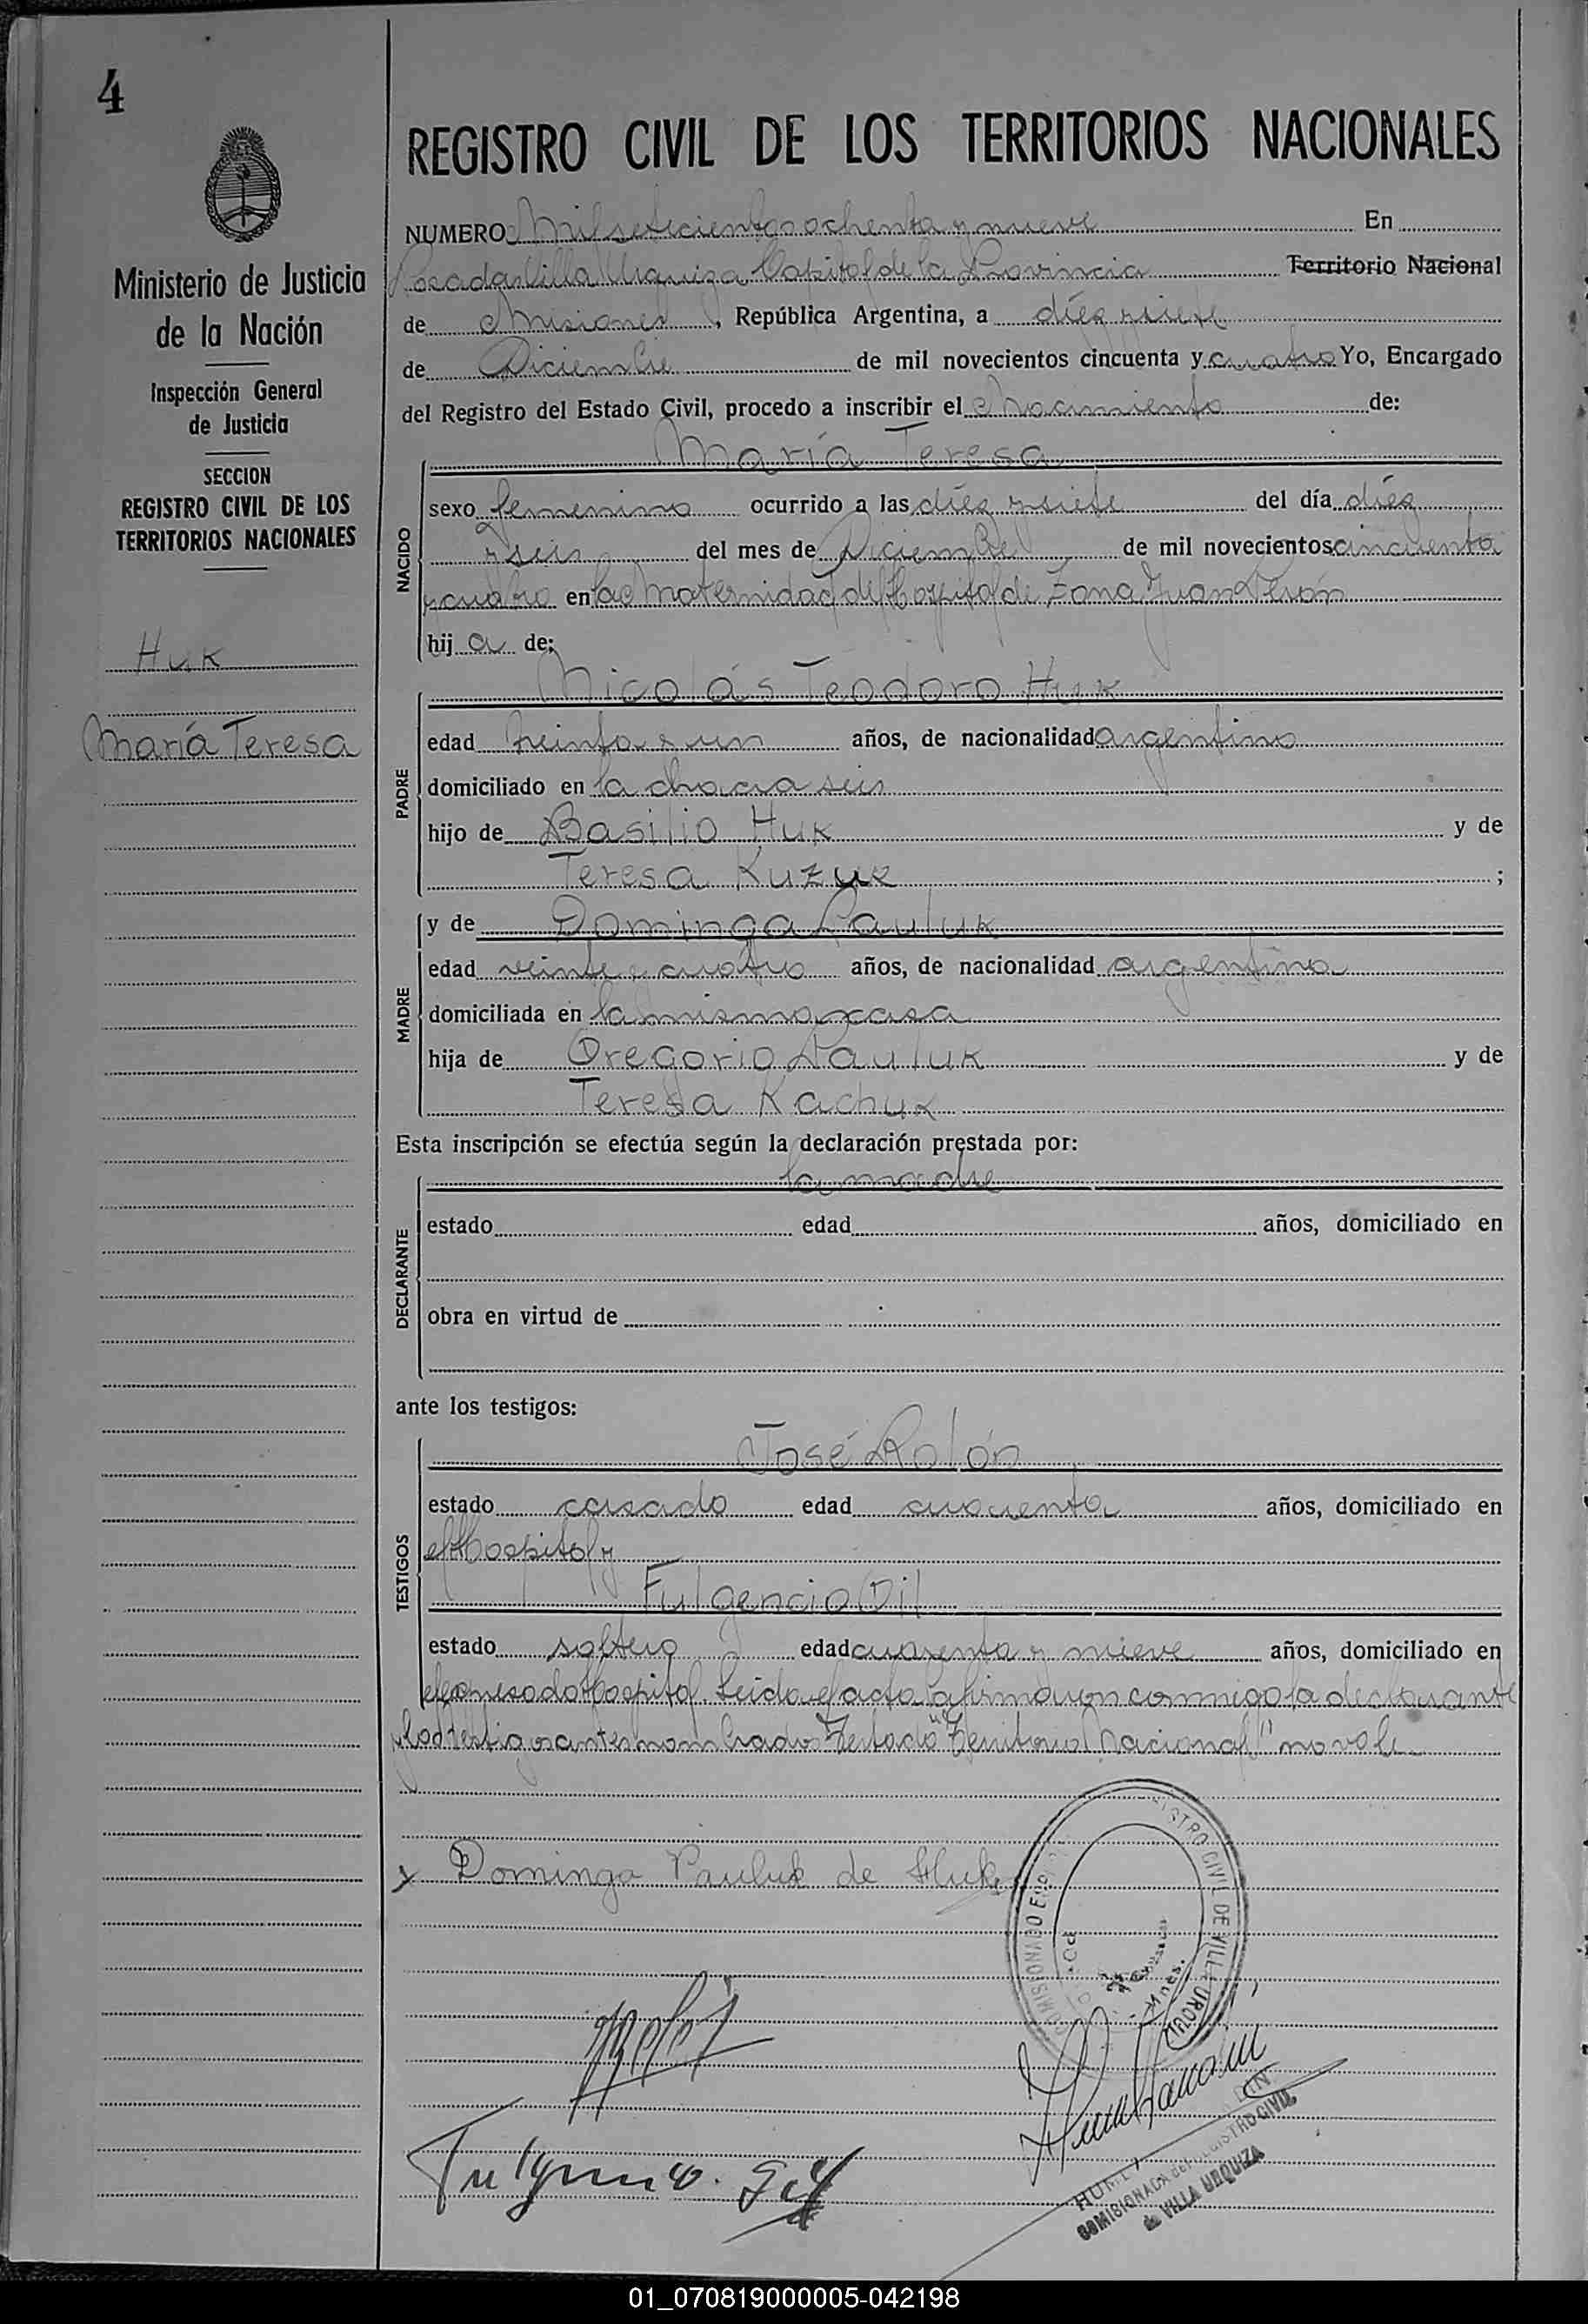 4
Ministerio de Justicia
de la Nación
Inspección General
de Justicia
SECCION
REGISTRO CIVIL DE LOS
TERRITORIOS NACIONALES
Huk
María Teresa
REGISTRO CIVIL DE LOS TERRITORIOS NACIONALES
NUMERO Mil setecientos ochenta y nueve En
Posadas Villa Urquiza Capital de la Provincia Territorio Nacional
de Misiones, República Argentina, a diéz y siete
de Diciembre de mil novecientos cincuenta y cuatro Yo, Encargado
del Registro del Estado Civil, procedo a inscribir el Nacimiento de:
María Teresa
NACIDO
sexo femenino ocurrido a las diéz y siete del día diéz
y seis del mes de Diciembre de mil novecientos cincuenta
y cuatro en la Maternidad del Hospital de Zona Juan Perón
hij a de:
Nicolás Teodoro Huk
PADRE
edad treinta y un años, de nacionalidad argentino
domiciliado en la chacra seis
hijo de Basilio Huk y de
Teresa Kuzuk ;
y de Dominga Pauluk
MADRE
edad veinte y cuatro años, de nacionalidad argentina
domiciliada en la misma casa
hija de Gregorio Pauluk y de
Teresa Kachuk
Esta inscripción se efectúa según la declaración prestada por:
la madre
DECLARANTE
estado edad años, domiciliado en
obra en virtud de
ante los testigos:
José Rolón
TESTIGOS
estado casado edad cuarenta años, domiciliado en
el Hospital y
Fulgencio Gil
estado soltero edad cuarenta y nueve años, domiciliado en
el expresado Hospital. Leida el acta la firmaron conmigo la declarante
y los testigos antes nombrados Testado "Territorio Nacional" no vale
x Dominga Pauluk de Huk
REGISTRO CIVIL DE VILLA URQUIZA
COMISIONADO
Mnes.
Fulgencio Gil
COMISIONADA DEL REGISTRO CIVIL
de VILLA URQUIZA
01_070819000005-042198